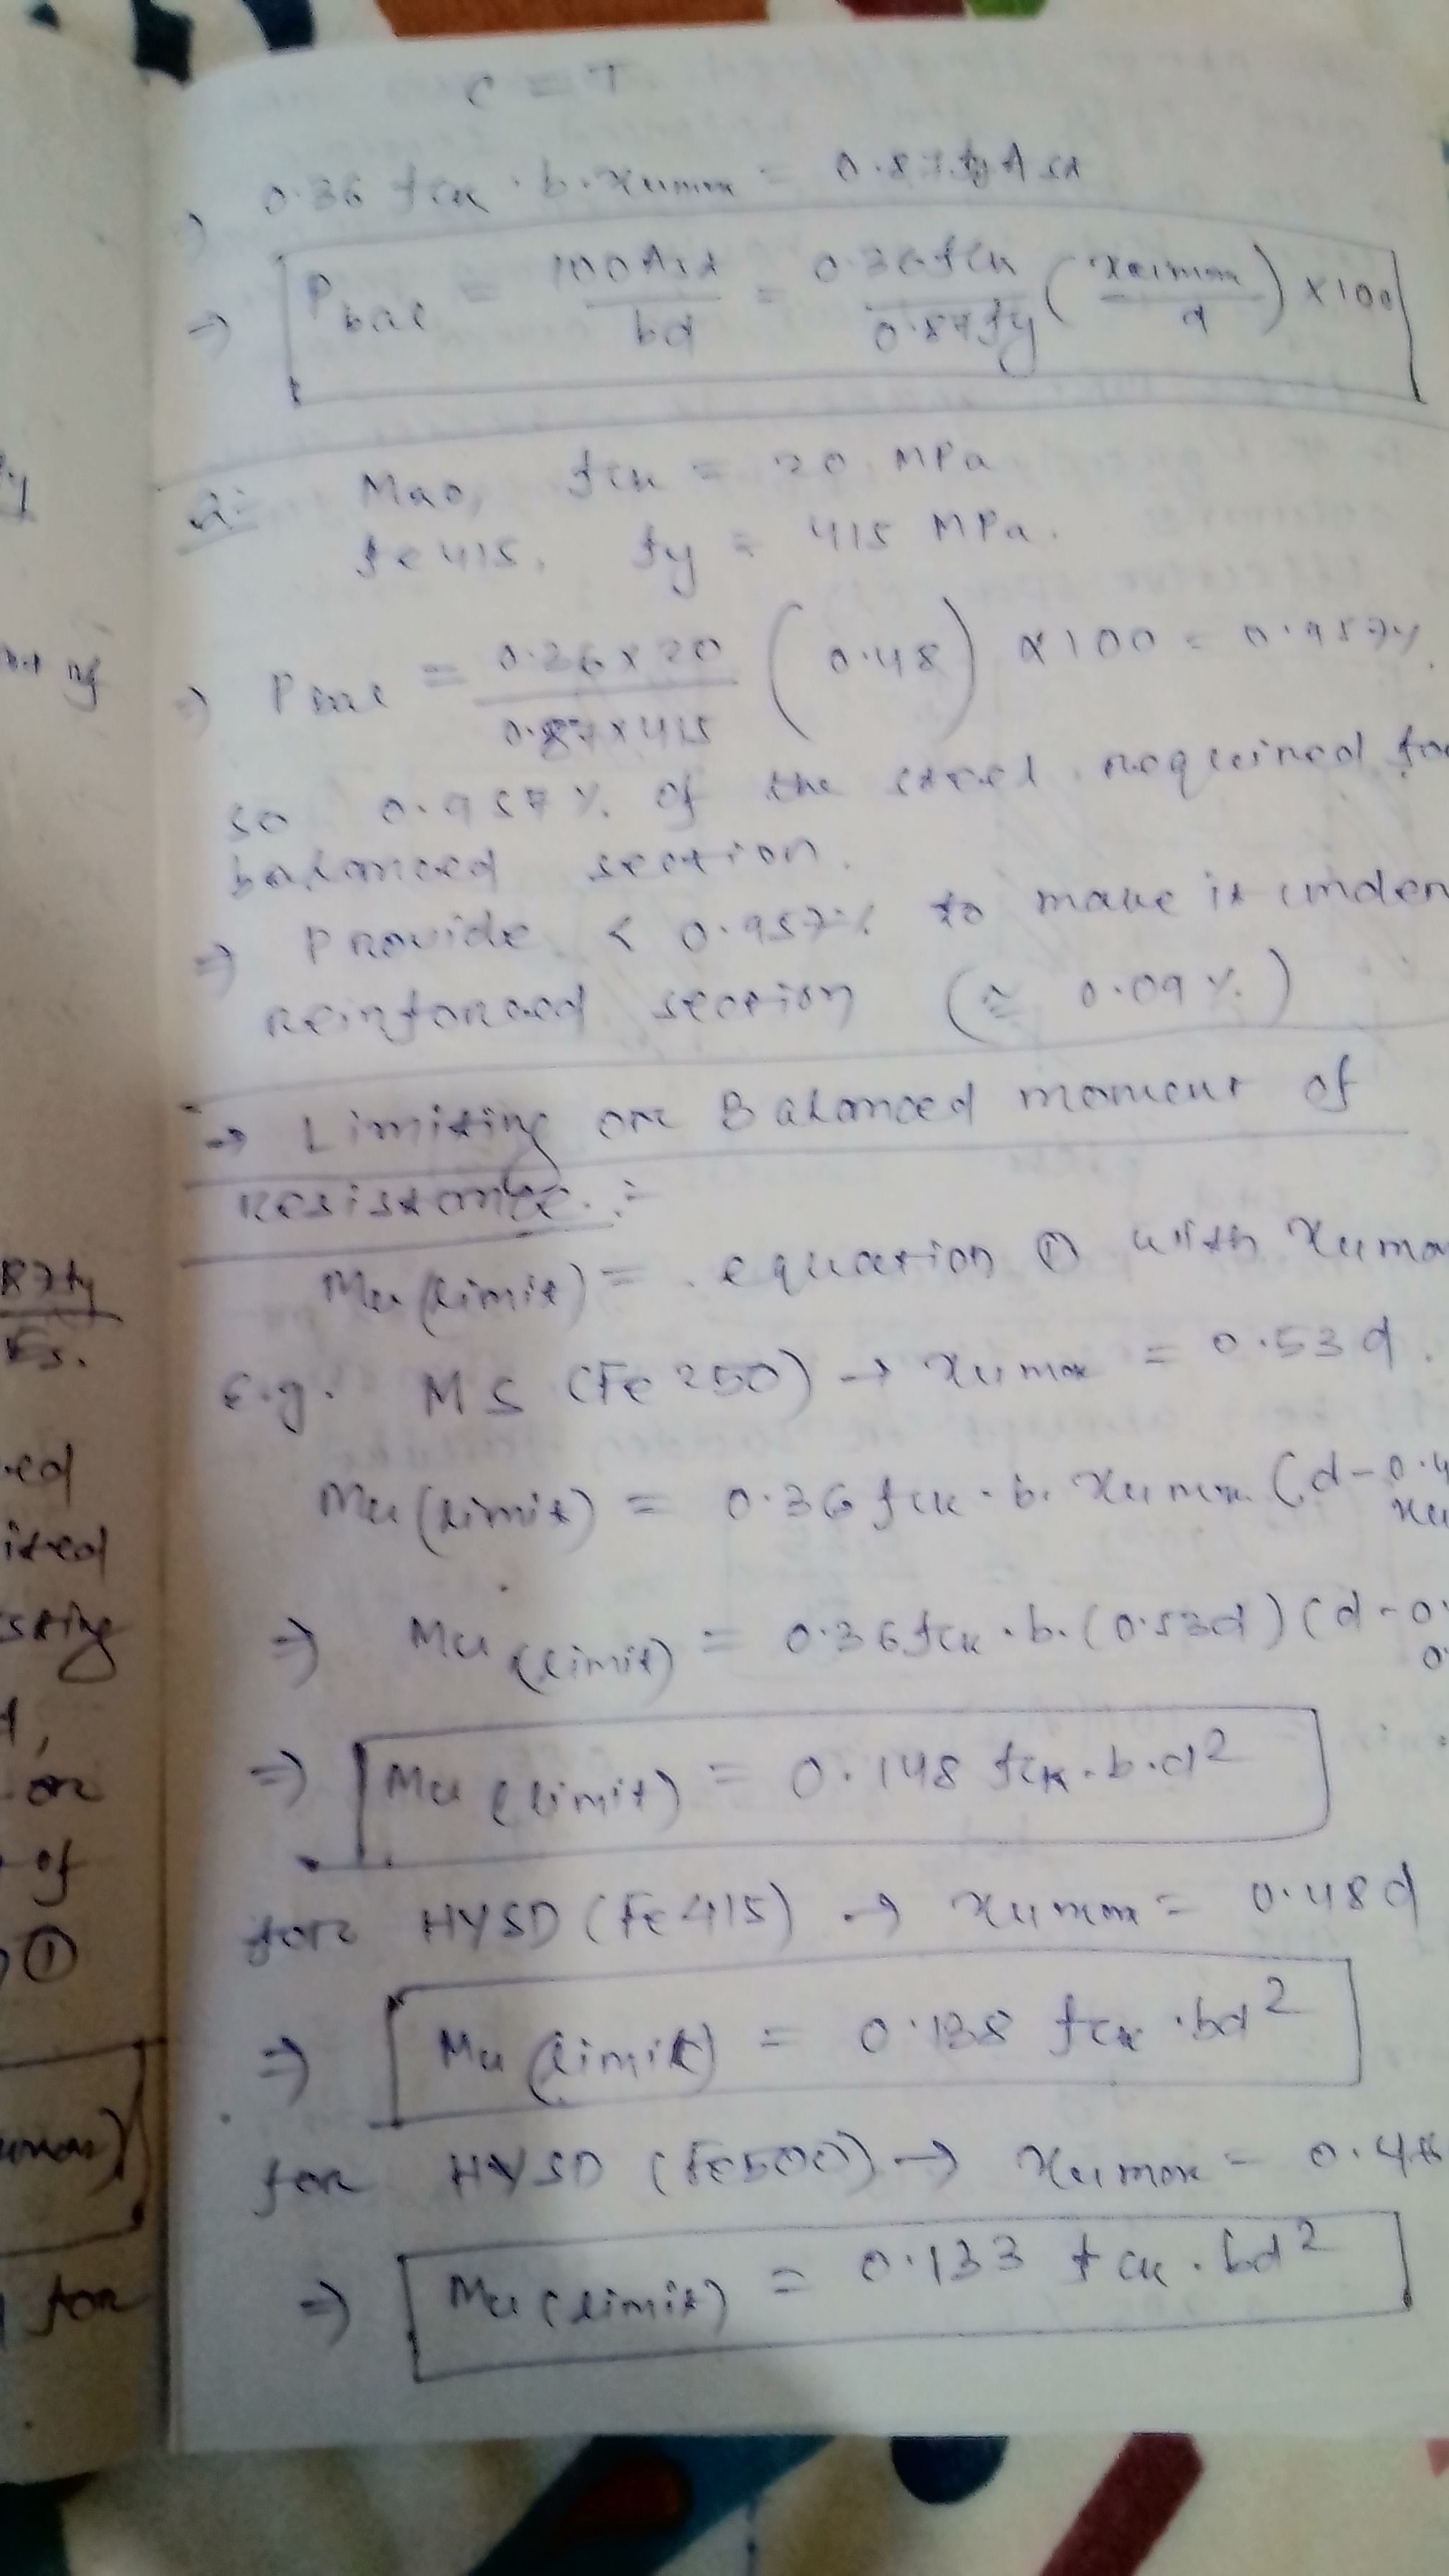 C = T
⇒ 0.36 fck . b . xumax = 0.87 fy Ast
⇒ Pbal = 100 Ast / bd = 0.36 fck / 0.87 fy ( xumax / d ) × 100
Q:- M20, fck = 20 MPa
fe 415, fy = 415 MPa.
⇒ Pbal = 0.36 × 20 / 0.87 × 415 ( 0.48 ) × 100 = 0.957%.
so 0.957 % of the steel required for
balanced section.
⇒ Provide < 0.957% to make it under
reinforced section (≅ 0.09 %)
→ Limiting or Balanced moment of
Resistance :-
Mu (limit) = equation ① with xumax
E.g. MS (Fe 250) → xumax = 0.53 d.
Mu (limit) = 0.36 fck . b . xumax (d - 0.4
xu
⇒ Mu (limit) = 0.36 fck . b . (0.53d) (d - 0.
0.
⇒ Mu (limit) = 0.148 fck . b . d²
for HYSD (Fe 415) → xumax = 0.48 d
⇒ Mu (limit) = 0.138 fck . bd²
for HYSD (Fe500) → xumax = 0.46
⇒ Mu (limit) = 0.133 fck . bd²
87fy
Es.
sting
or
of
①
umax)
for